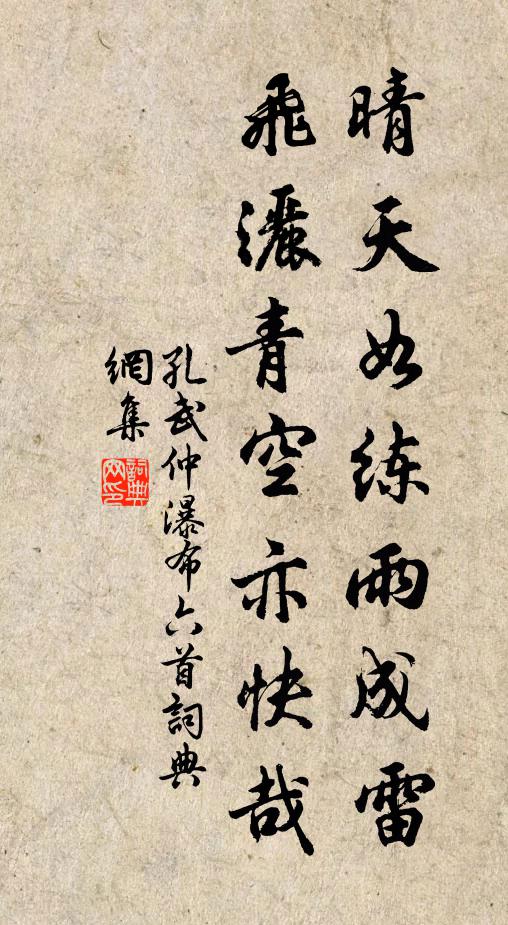 晴天如練雨成雷
飛灑青空亦快哉
孔武仲瀑布六首詞典
網集
詞典
网印